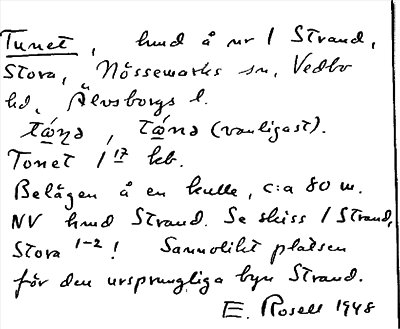 Tunet, hmd å nr 1 Strand,
Stora, Nössemarks sn, Vedbo
hd, Älvsborgs l.
tȧ́ŋə, tȧ́nə (vanligast).
Tonet 1 17 kb.
Belägen å en kulle, c:a 80 m.
NV hmd Strand. Se skiss / Strand,
Stora 1-2! Sannolikt platsen
för den ursprungliga byn Strand.
E. Rosell 1948